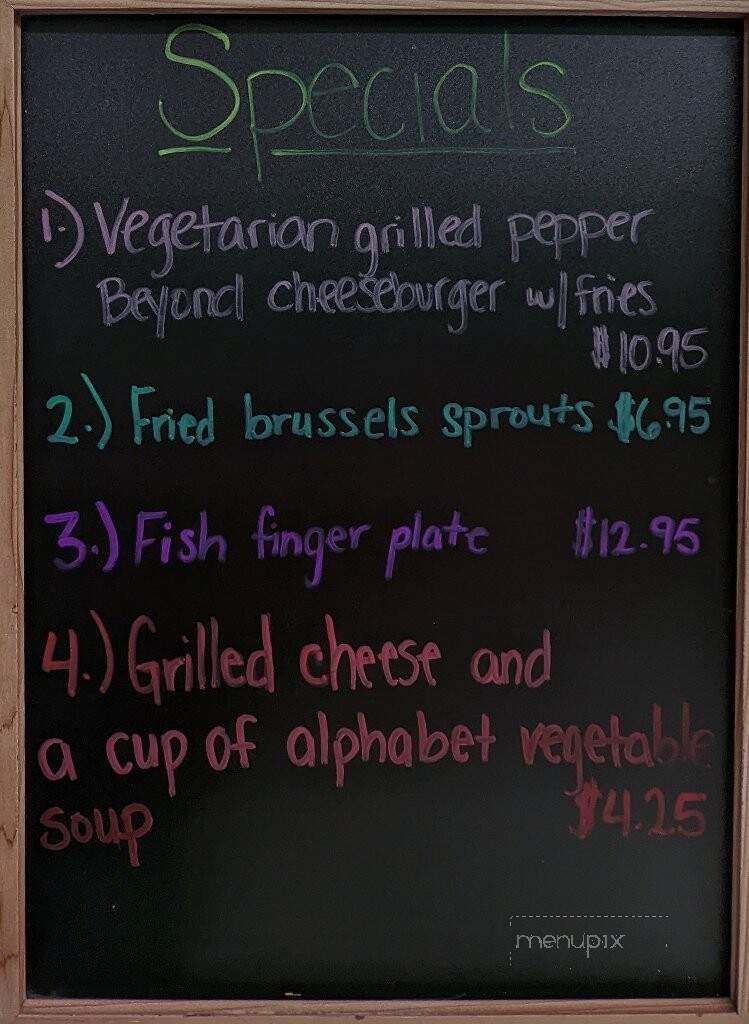 Specials
1.) Vegetarian grilled pepper
Beyond cheeseburger w/ fries
$10.95
2.) Fried brussels sprouts $6.95
3.) Fish finger plate $12.95
4.) Grilled cheese and
a cup of alphabet vegetable
soup $4.25
menupix